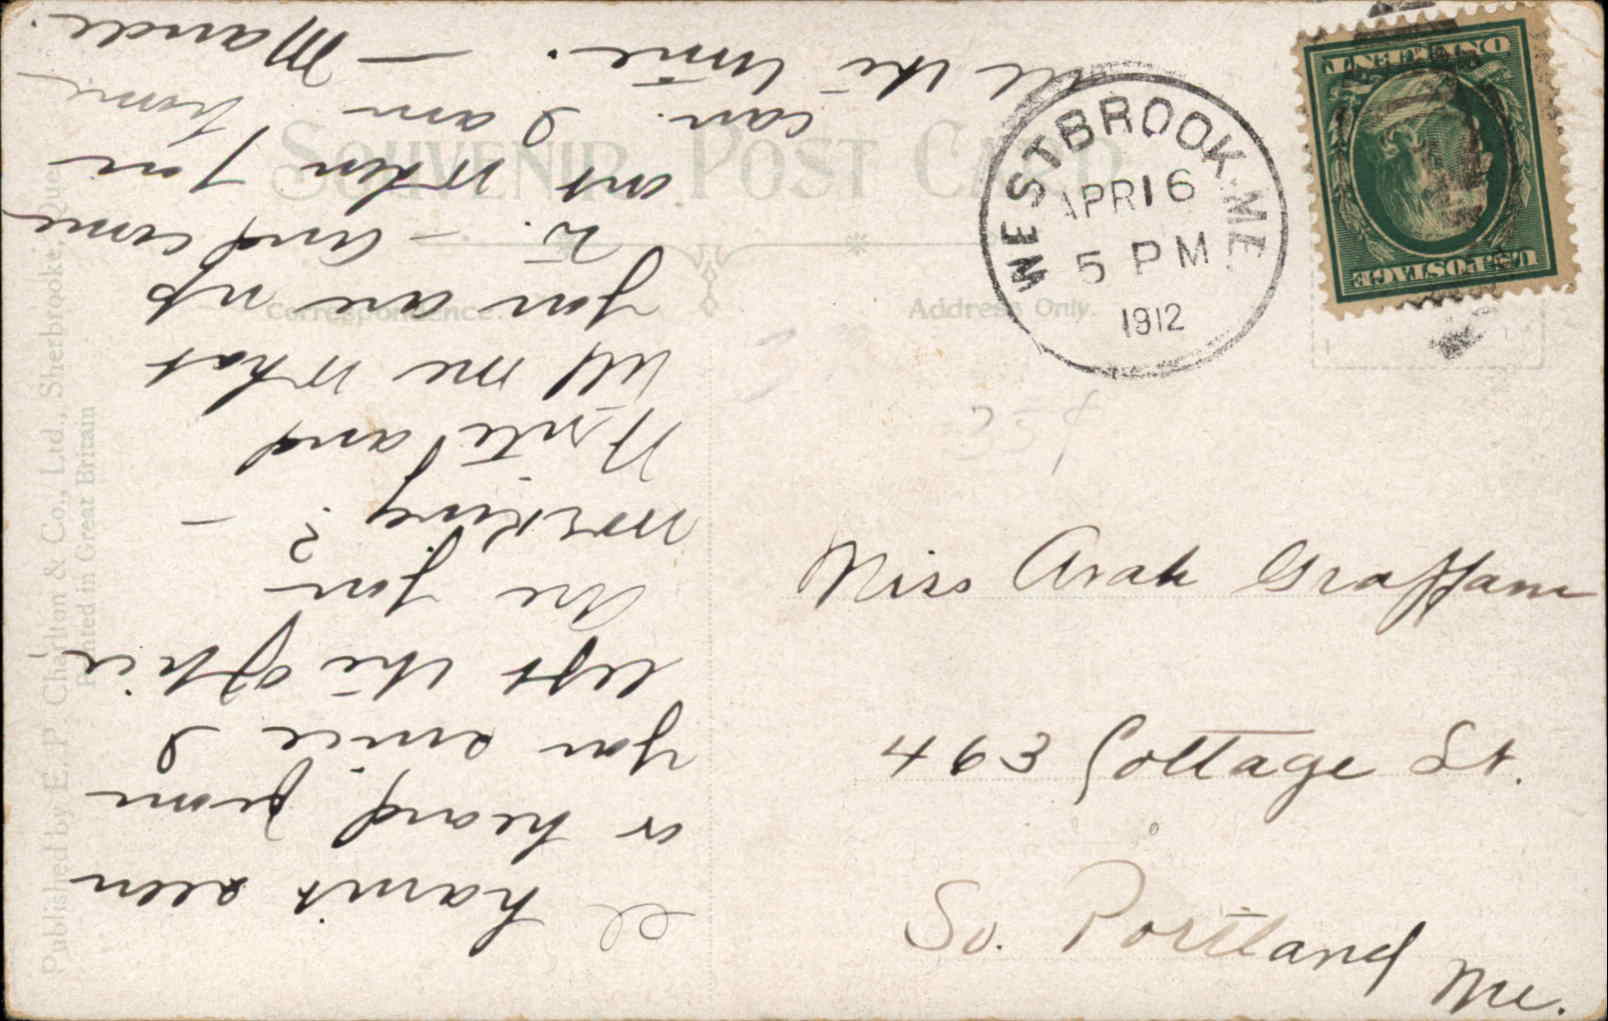 SOUVENIR POST CARD
Correspondence.
Address Only.
WESTBROOK, ME.
APR 16
5 PM
1912
U.S. POSTAGE
ONE CENT
Miss Arah Graffam
463 Cottage St.
So. Portland
Me.
I havn't seen
or heard from
you since I
left the office
Are you
working? -
Write and
tell me what
you are up
to. - And come
out when you
can. I am home
all the time. - Maude.
Published by E. P. Charlton & Co., Ltd., Sherbrooke, Que.
Printed in Great Britain